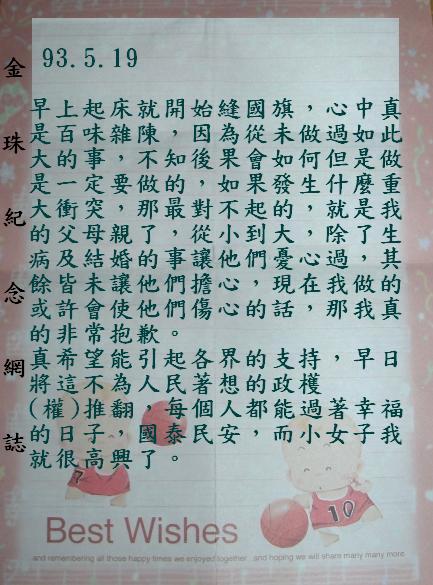 金珠紀念網誌
93.5.19
早上起床就開始縫國旗，心中真
是百味雜陳，因為從未做過如此
大的事，不知後果會如何但是做
是一定要做的，如果發生什麼重
大衝突，那最對不起的，就是我
的父母親了，從小到大，除了生
病及結婚的事讓他們憂心過，其
餘皆未讓他們擔心，現在我做的
或許會使他們傷心的話，那我真
的非常抱歉。
真希望能引起各界的支持，早日
將這不為人民著想的政權
(權)推翻，每個人都能過著幸福
的日子，國泰民安，而小女子我
就很高興了。
7
10
Best Wishes
and remembering all those happy times we enjoyed together...and hoping we will share many many more